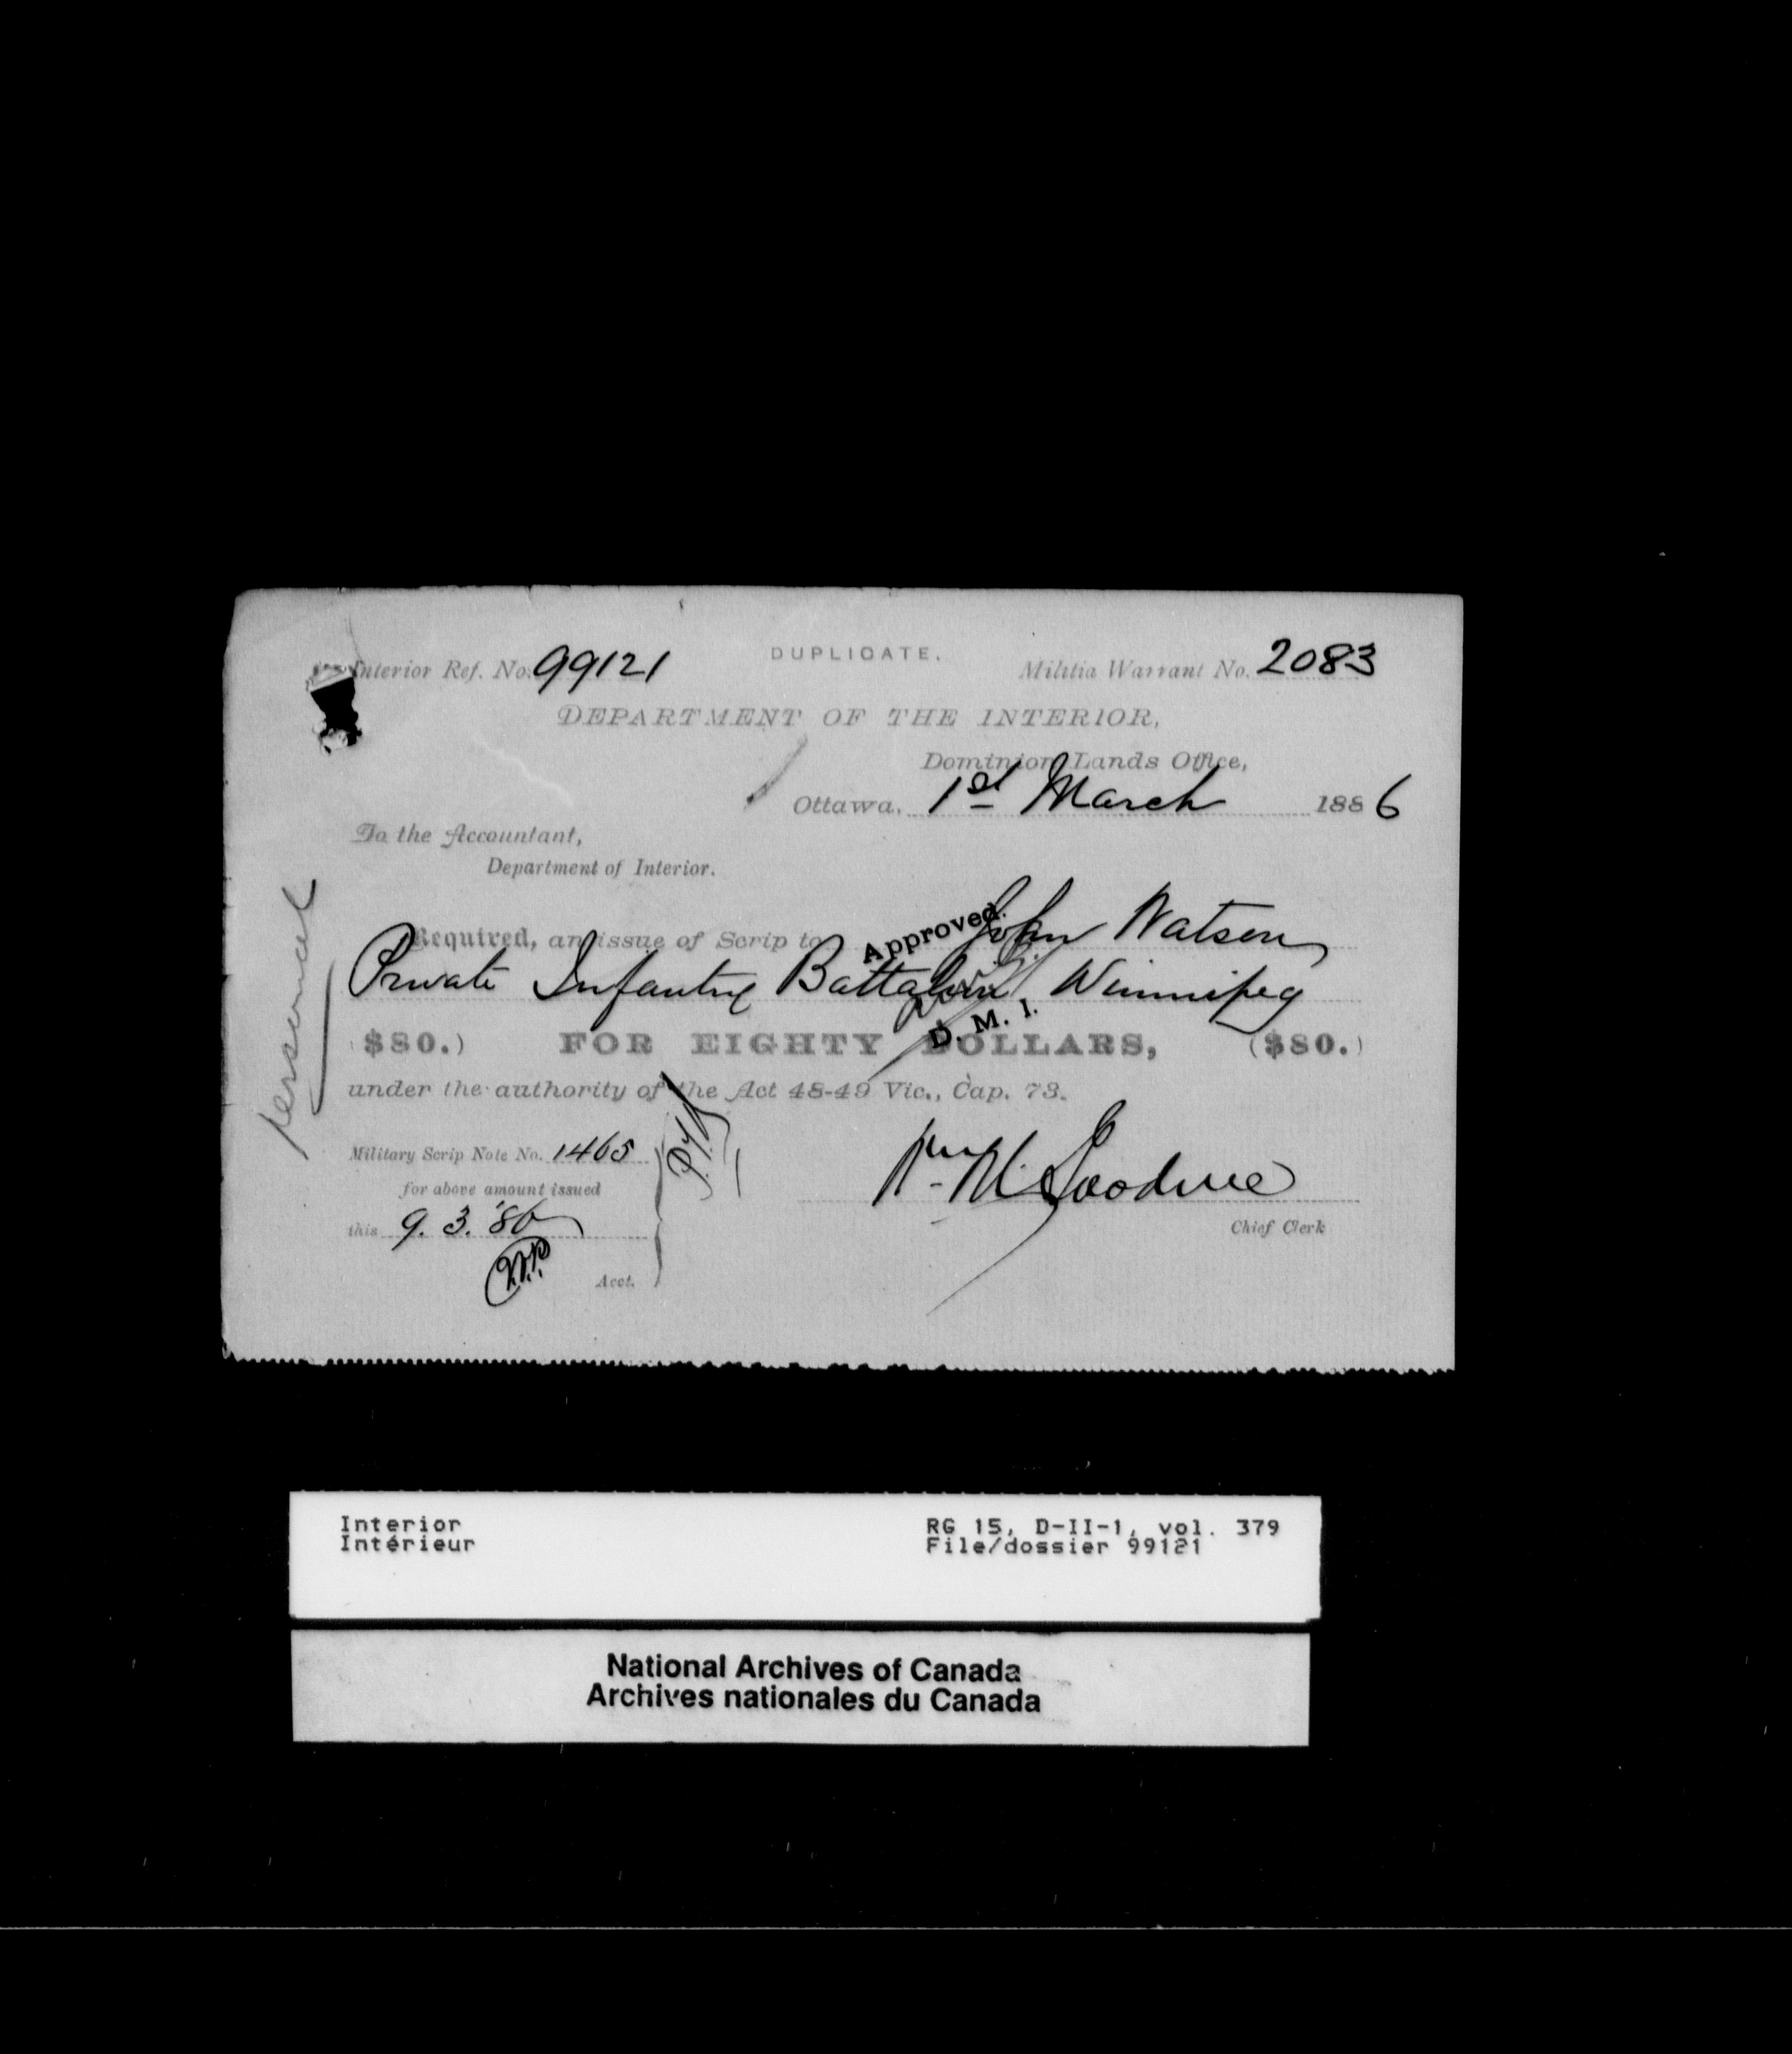 DUPLICATE.
Interior Ref. No. 99121
Militia Warrant No. 2083
DEPARTMENT OF THE INTERIOR,
Dominion Lands Office,
Ottawa, 1st March 1886
To the Accountant,
Department of Interior.
Required, an issue of Scrip to John Watson
Approved.
Private Infantry Battalion Winnipeg
D. M. I.
($80.) FOR EIGHTY DOLLARS, ($80.)
under the authority of the Act 48-49 Vic., Cap. 73.
personal
Military Scrip Note No. 1465
for above amount issued
this 9. 3. '86
Acct.
Wm M. Goodeve
Chief Clerk
Interior
Intérieur
RG 15, D-II-1, vol. 379
File/dossier 99121
National Archives of Canada
Archives nationales du Canada